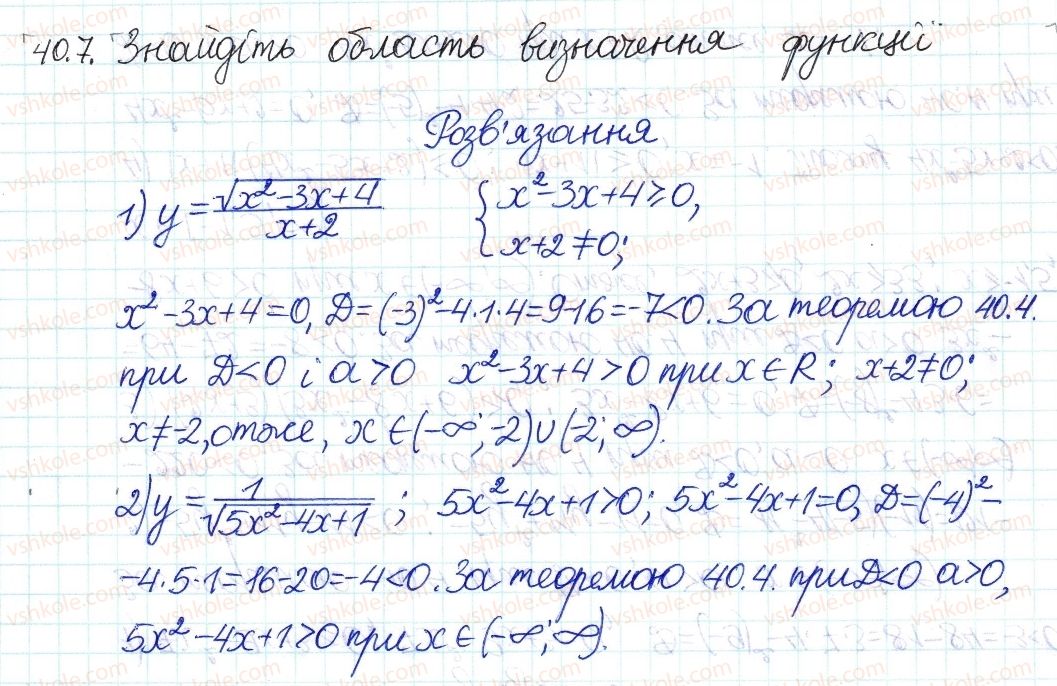 40.7. Знайдіть область визначення функції
Розв'язання
1) y = √(x² - 3x + 4) / (x + 2)   { x² - 3x + 4 ≥ 0, x + 2 ≠ 0;
x² - 3x + 4 = 0, D = (-3)² - 4·1·4 = 9 - 16 = -7 < 0. За теоремою 40.4.
при D < 0 і a > 0 x² - 3x + 4 > 0 при x ∈ R; x + 2 ≠ 0;
x ≠ -2, отже, x ∈ (-∞; -2) ∪ (-2; ∞).
2) y = 1 / √(5x² - 4x + 1); 5x² - 4x + 1 > 0; 5x² - 4x + 1 = 0, D = (-4)² -
- 4·5·1 = 16 - 20 = -4 < 0. За теоремою 40.4. при D < 0 a > 0,
5x² - 4x + 1 > 0 при x ∈ (-∞; ∞).